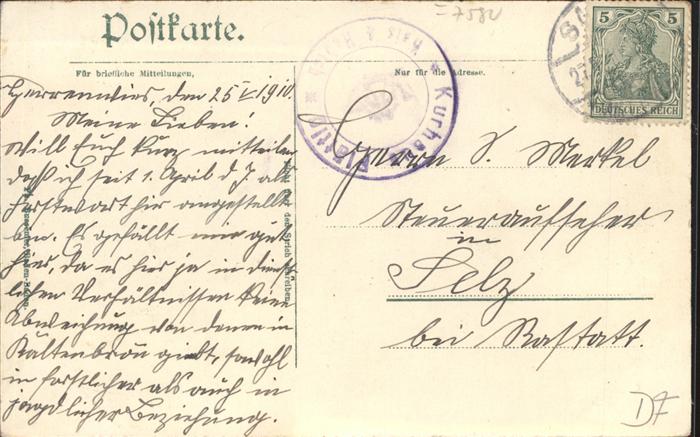 Postkarte.
Für briefliche Mitteilungen,
Nur für die Adresse.
Herrenwies, den 25 V 1910.
Meine Lieben!
Will Euch kurz mitteilen
daß ich seit 1. April d. J. als
Forstwart hier angestellt
bin. Es gefällt mir gut
hier, da es hier ja in dienst-
lichen Verhältnissen keine
Abweichung von denen in
Kaltenbron giebt, sowohl
in forstlicher als auch in
jagdlicher Beziehung.
Herrn S. Merkel
Steueraufseher
in
Selz
bei Rastatt.
Kurhaus
5 5
DEUTSCHES REICH
7582
DF